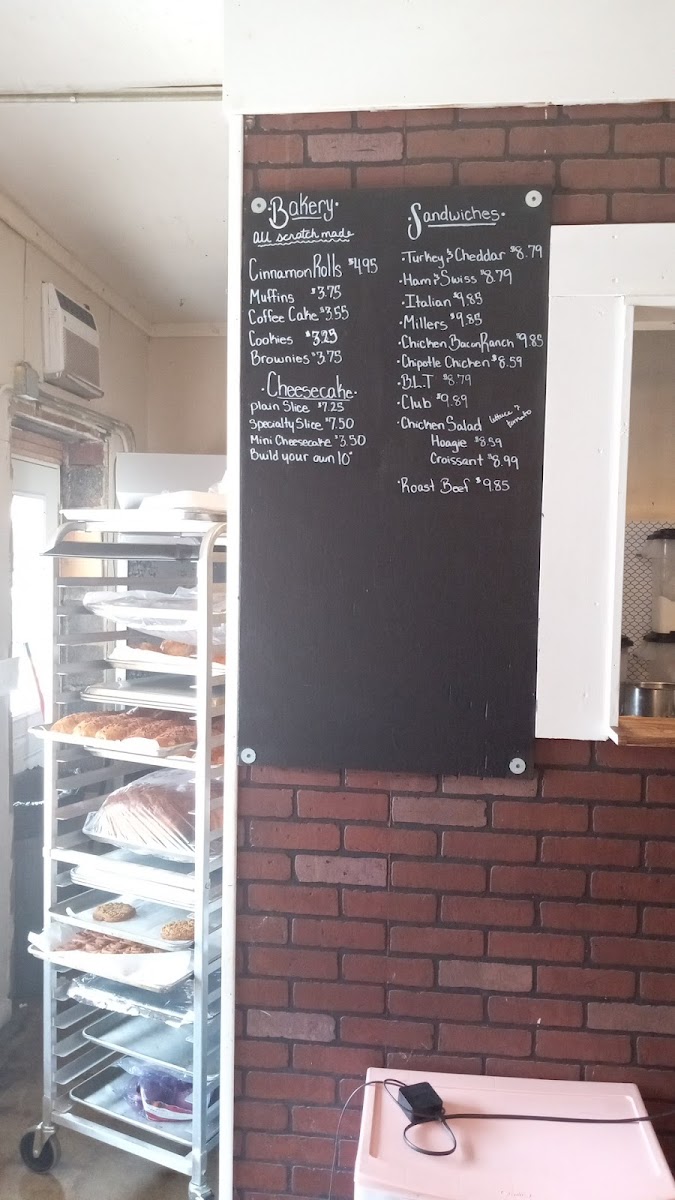 ·Bakery·
All scratch made
Cinnamon Rolls $4.95
Muffins $3.75
Coffee Cake $3.55
Cookies $3.29
Brownies $3.75
·Cheesecake·
Plain Slice $7.25
Specialty Slice $7.50
Mini Cheesecake $3.50
Build your own 10"
·Sandwiches·
·Turkey & Cheddar $8.79
·Ham & Swiss $8.79
·Italian $9.85
·Millers $9.85
·Chicken Bacon Ranch $9.85
·Chipotle Chicken $8.59
·B.L.T $8.79
·Club $9.89
·Chicken Salad lettuce &
tomato
Hoagie $8.59
Croissant $8.99
·Roast Beef $9.85